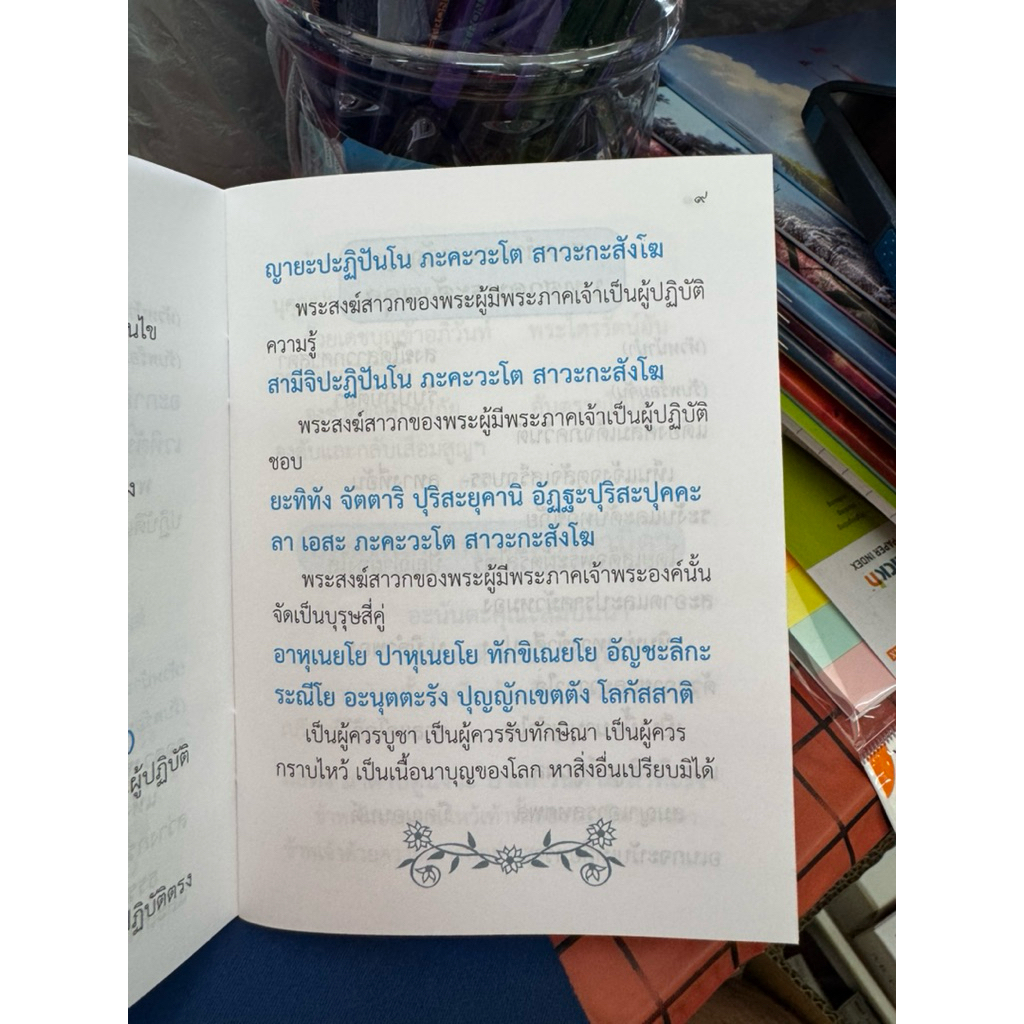 ๙
ญายะปะฏิปันโน ภะคะวะโต สาวะกะสังโฆ
พระสงฆ์สาวกของพระผู้มีพระภาคเจ้าเป็นผู้ปฏิบัติ
ความรู้
สามีจิปะฏิปันโน ภะคะวะโต สาวะกะสังโฆ
พระสงฆ์สาวกของพระผู้มีพระภาคเจ้าเป็นผู้ปฏิบัติ
ชอบ
ยะทิทัง จัตตาริ ปุริสะยุคานิ อัฏฐะปุริสะปุคคะ
ลา เอสะ ภะคะวะโต สาวะกะสังโฆ
พระสงฆ์สาวกของพระผู้มีพระภาคเจ้าพระองค์นั้น
จัดเป็นบุรุษสี่คู่
อาหุเนยโย ปาหุเนยโย ทักขิเณยโย อัญชะลีกะ
ระณีโย อะนุตตะรัง ปุญญักเขตตัง โลกัสสาติ
เป็นผู้ควรบูชา เป็นผู้ควรรับทักษิณา เป็นผู้ควร
กราบไหว้ เป็นเนื้อนาบุญของโลก หาสิ่งอื่นเปรียบมิได้
ผู้ปฏิบัติ
PAPER INDEX